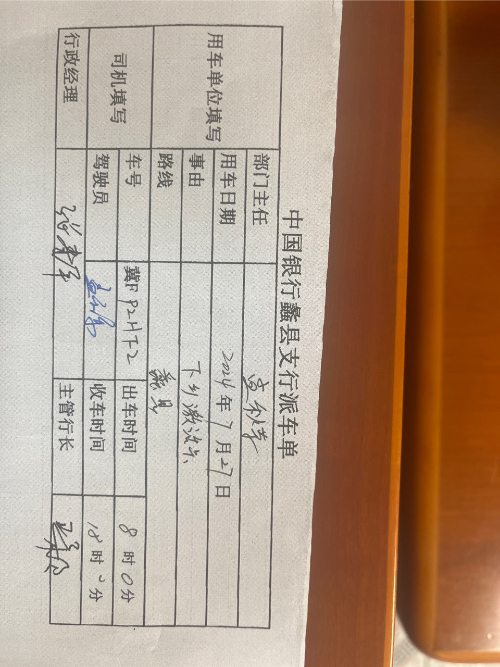 中国银行蠡县支行派车单
用车单位填写 部门主任
用车日期 2024年7月27日
事由 下乡激活卡
路线 蠡县
司机填写 车号 冀F P2HF2 出车时间 8时0分
驾驶员 收车时间 18时0分
行政经理 主管行长